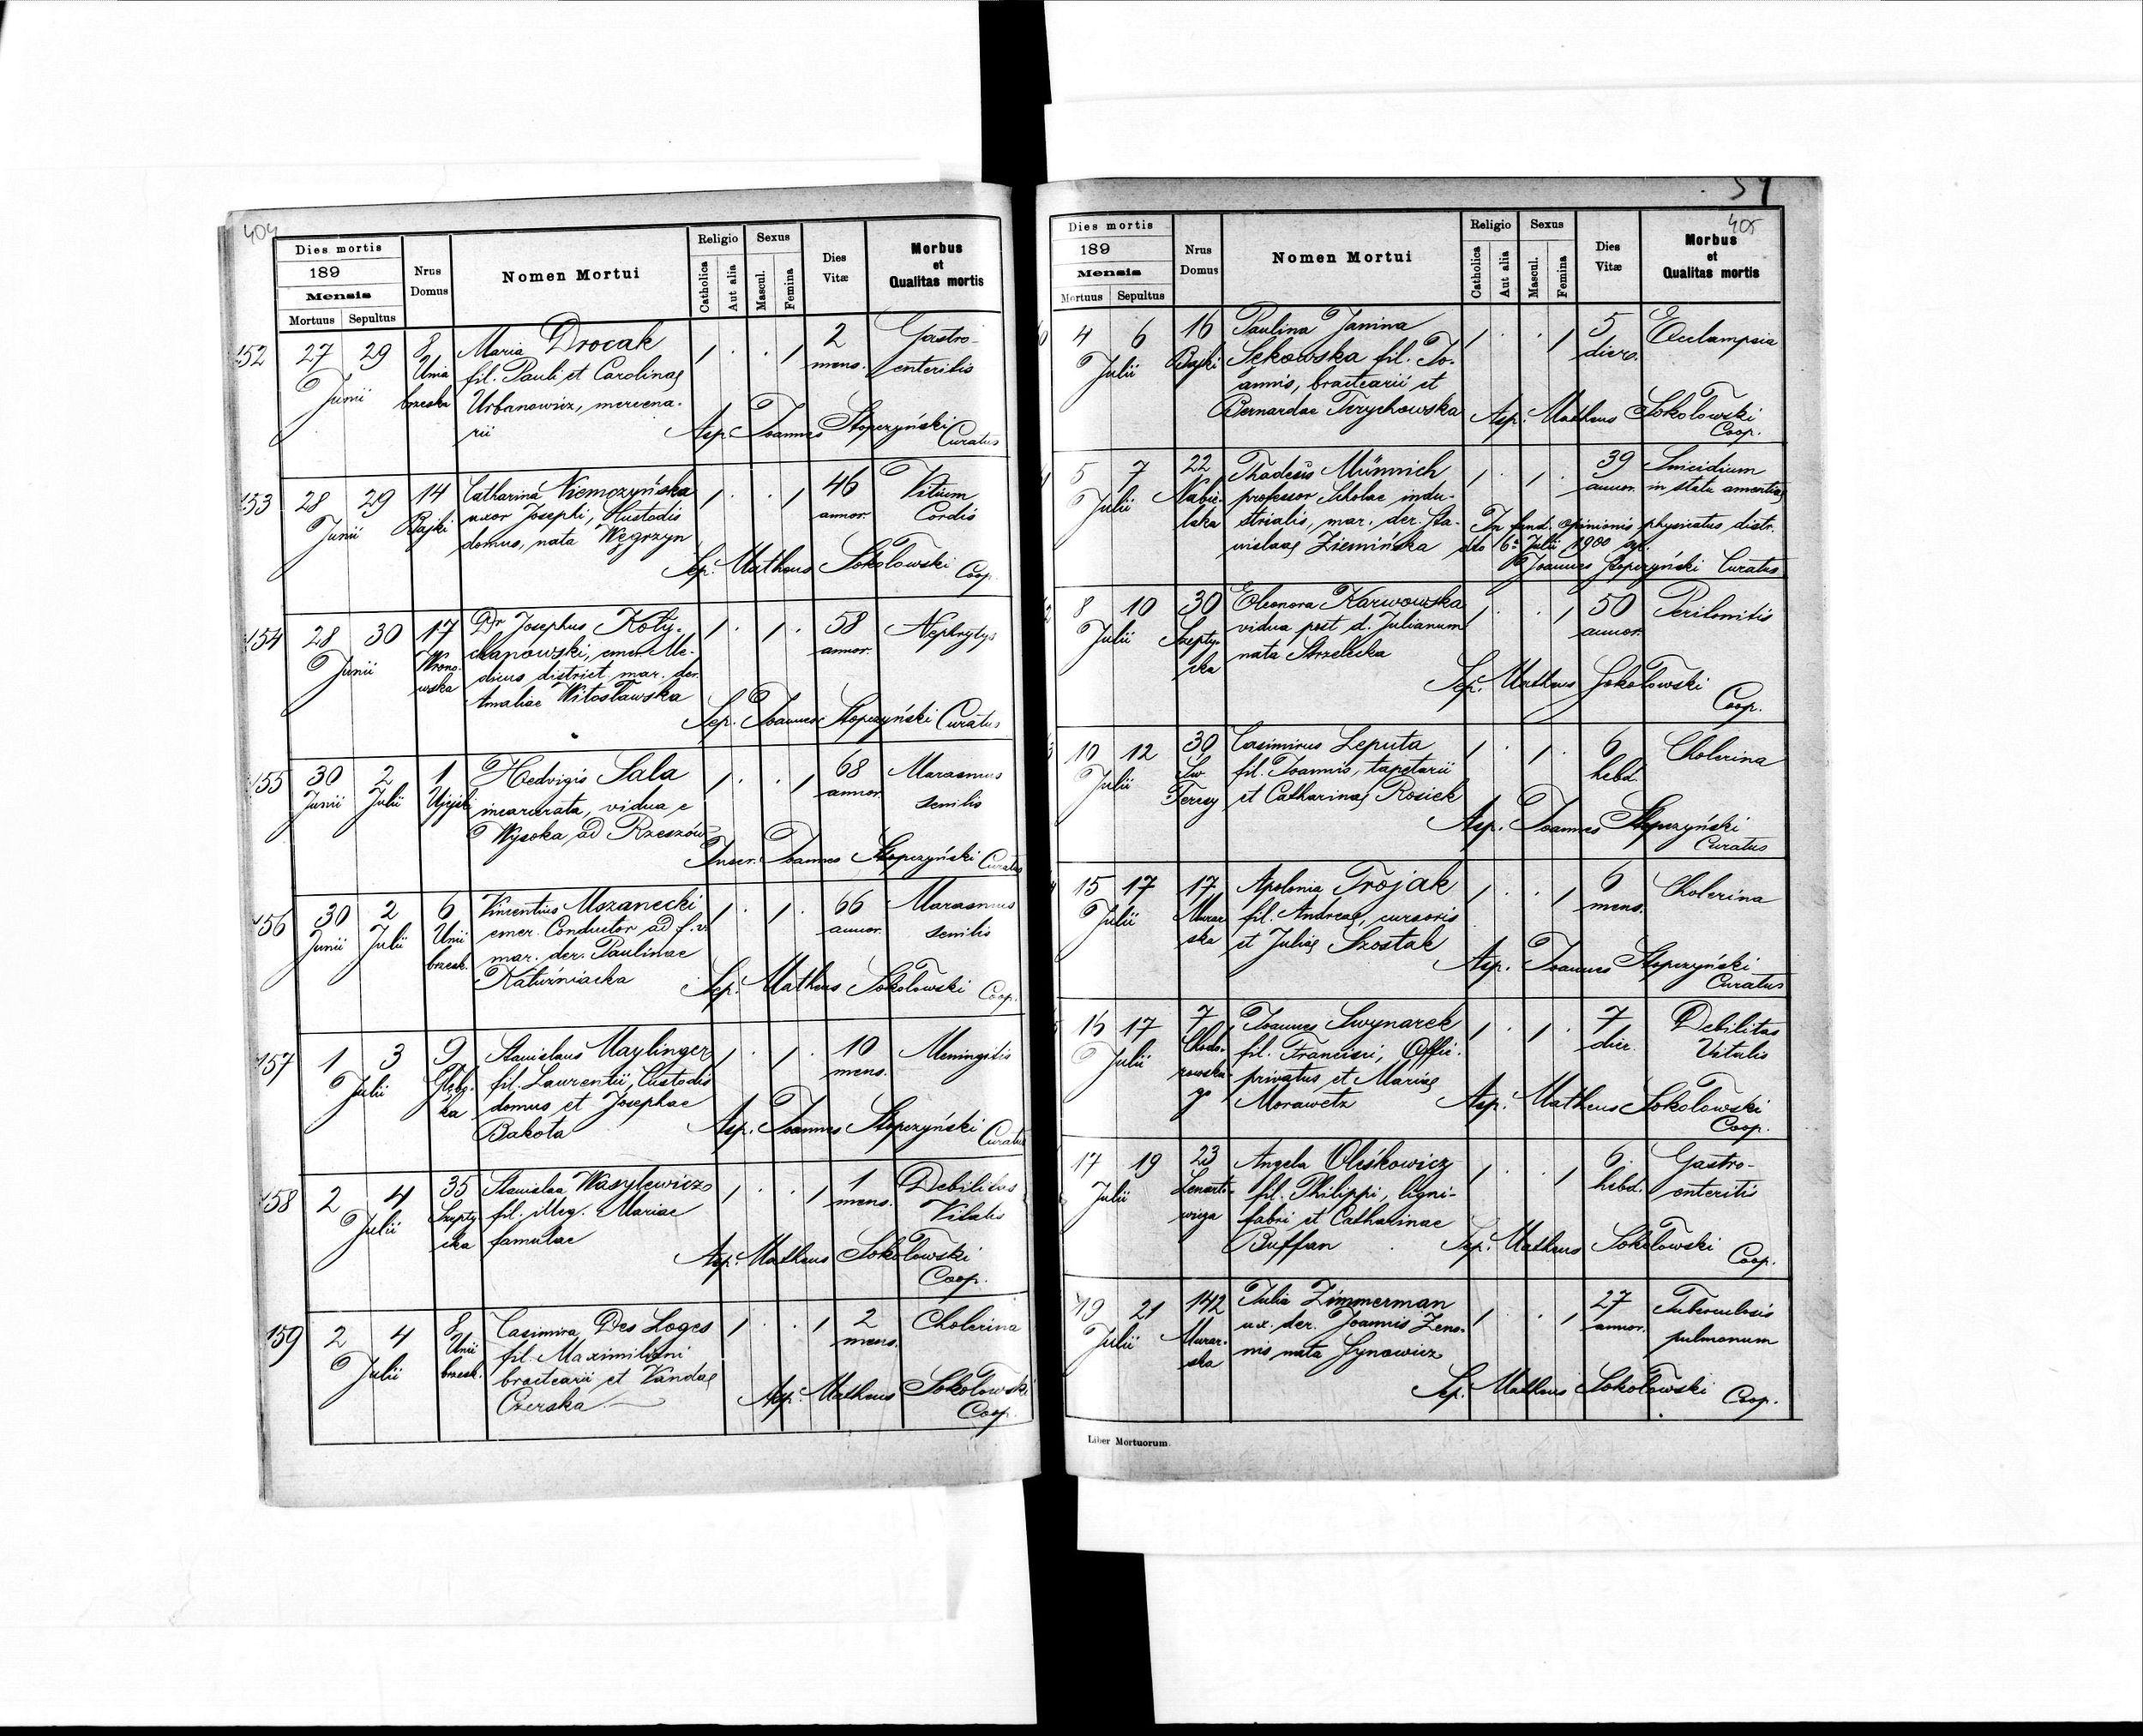 404
Dies mortis
189
Mensis
Mortuus Sepultus
Nrus Domus
Nomen Mortui
Religio
Catholica
Aut alia
Sexus
Mascul.
Femina
Dies Vitæ
Morbus
et
Qualitas mortis
152 27 29 8 Maria Drocak 1 . . 1 2 Gastro-
Junii Unia fil. Pauli et Carolinae mens. enteritis
brzeska Urbanowicz, mercena-
rii Asp. Joannes Stopczyński Curatus
153 28 29 14 Catharina Niemczyńska 1 . . 1 46 Vitium
Junii Bajki uxor Josephi, Custodis annor. Cordis
domus, nata Węgrzyn
Sep. Matheus Sokołowski Coop.
154 28 30 17 Dr Josephus Koty- 1 . 1 . 58 Nephrytys
Junii Wrono- chapowski, emer. Me- annor.
wska dicus district. mar. der.
Amaliae Witosławska
Sep. Joannes Stopczyński Curatus
155 30 2 1 Hedvigis Sala 1 . . 1 68 Marasmus
Junii Julii Ujejski incarcerata, vidua e annor. senilis
Wysoka ad Rzeszów
Inser. Joannes Stopczyński Curatus
156 30 2 6 Vincentius Mozanecki 1 . 1 . 66 Marasmus
Junii Julii Unii emer. Conductor ad f. v. annor. senilis
brzesk. mar. der. Paulinae
Katuźniacka Sep. Matheus Sokołowski Coop.
157 1 3 9 Stanislaus Maylinger 1 . 1 . 10 Meningitis
Julii Głębo- fil. Laurentii, Custodis mens.
ka domus et Josephae
Bakota Asp. Joannes Stopczyński Curatus
158 2 4 35 Stanislaa Wasylewicz 1 . . 1 1 Debilitas
Julii Szepty- fil. illeg. Mariae mens. Vitalis
cka famulae
Asp. Matheus Sokołowski
Coop.
159 2 4 8 Casimira Des Loges 1 . . 1 2 Cholerina
Julii Unii fil. Maximiliani mens.
brzesk. bractearii et Vandae
Czerska Asp. Matheus Sokołowski
Coop.
405
Dies mortis
189
Mensis
Mortuus Sepultus
Nrus Domus
Nomen Mortui
Religio
Catholica
Aut alia
Sexus
Mascul.
Femina
Dies Vitæ
Morbus
et
Qualitas mortis
4 6 16 Paulina Janina 1 . . 1 5 Ecclampsia
Julii Bajki Sękowska fil. Jo- dier.
annis, bractearii et
Bernardae Terychowska Asp. Matheus Sokołowski
Coop.
5 7 22 Thadeus Münnich 1 . 1 . 39 Suicidium
Julii Nabie- professor Scholae indu- annor. in statu amentiae
laka strialis, mar. der. Sta- In fund. opinionis physicatus distr.
nislaae Ziemińska dto 6a Julii 1900 sep.
Joannes Stopczyński Curatus
8 10 30 Eleonora Karwowska 1 . . 1 50 Peritonitis
Julii Szepty- vidua post d. Julianum annor.
cka nata Strzelecka
Sep. Matheus Sokołowski
Coop.
10 12 30 Casimirus Leputa 1 . 1 . 6 Cholerina
Julii Św. fil. Joannis, tapetarii hebd.
Teresy et Catharinae Rosiek
Asp. Joannes Stopczyński
Curatus
15 17 17 Apolonia Trojak 1 . . 1 6 Cholerina
Julii Murar- fil. Andreae, cursoris mens.
ska et Juliae Szostak
Asp. Joannes Stopczyński
Curatus
16 17 7 Joannes Swynarek 1 . 1 . 7 Debilitas
Julii Chodo- fil. Francisci, Offic. dier. Vitalis
rowskie- privatus et Mariae
go Morawetz Asp. Matheus Sokołowski
Coop.
17 19 23 Angela Oleśkowicz 1 . . 1 6 Gastro-
Julii Lenarto- fil. Philippi, ligni- hebd. enteritis
wicza fabri et Catharinae
Buffan Sep. Matheus Sokołowski
Coop.
19 21 142 Julia Zimmerman 1 . . 1 27 Tuberculosis
Julii Murar- ux. der. Joannis Zeno- annor. pulmonum
ska nis nata Synowicz
Sep. Matheus Sokołowski
Coop.
Liber Mortuorum